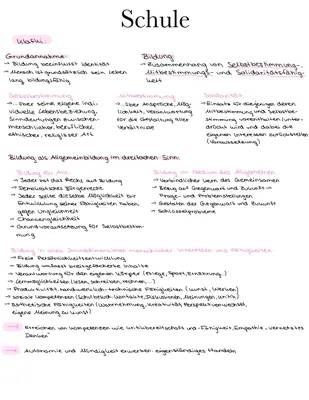 Schule
Klafki
Grundannahme:
→ Bildung beeinflusst Identität
→ Mensch ist grundsätzlich sein Leben
lang bildungsfähig
Bildung:
→ Zusammenhang von Selbstbestimmungs-,
Mitbestimmungs- und Solidaritätsfähig-
keit
Selbstbestimmung
→ über seine eigene indi-
viduelle Lebensbeziehung,
Sinndeutungen zwischen-
menschlicher, beruflicher,
ethischer, religiöser Art
Mitbestimmung
→ über Ansprüche, Mög-
lichkeit, Verantwortung
für die Gestaltung aller
Verhältnisse
Solidarität
→ Einsatz für diejenigen deren
Mitbestimmung und Selbstbe-
stimmung vorenthalten/unter-
drückt wird und dabei die
eigenen Interessen
(Voraussetzung)
Bildung als Allgemeinbildung im dreifachen Sinn:
Bildung für Alle
→ Jeder hat das Recht auf Bildung
→ Demokratisches Bürgerrecht
→ Jeder sollte dieselbe Möglichkeit zur
Entwicklung seiner Fähigkeiten haben,
gegen Ungleichheit
→ Chancengleichheit
→ Grundvoraussetzung für Selbstbestim-
mung
Bildung im Medium des Allgemeinen
→ Verbindlicher Kern des Gemeinsamen
→ Bezug auf Gegenwart und Zukunft →
Frage- und Problemstellungen
→ Gestalten der Gegenwart und Zukunft
→ Schlüsselprobleme
Bildung in allen Grunddimensionen menschlicher Interessen und Fähigkeiten
→ Freie Persönlichkeitsentwicklung
→ Bildung umfasst breitgefächerte Inhalte
→ Verantwortung für den eigenen Körper (Pflege, Sport, Ernährung..)
→ Lernmöglichkeiten (lesen, schreiben, rechnen,...)
→ Produktivität handwerklich-technische Fähigkeiten (Kunst, Werken)
→ soziale Kompetenzen (Schulbesuch, Kontakte, Diskussionen, Meinungen, Kritik)
→ ästhetische Fähigkeiten (Wahrnehmung, Kreativität, Perspektivenvielfalt,
eigene Meinung zu Kunst)
→ Erreichen von Kompetenzen wie Kritikbereitschaft und -fähigkeit, Empathie, vernetztes
Denken"
→ Autonomie und Mündigkeit erwerben: eigenständiges Handeln